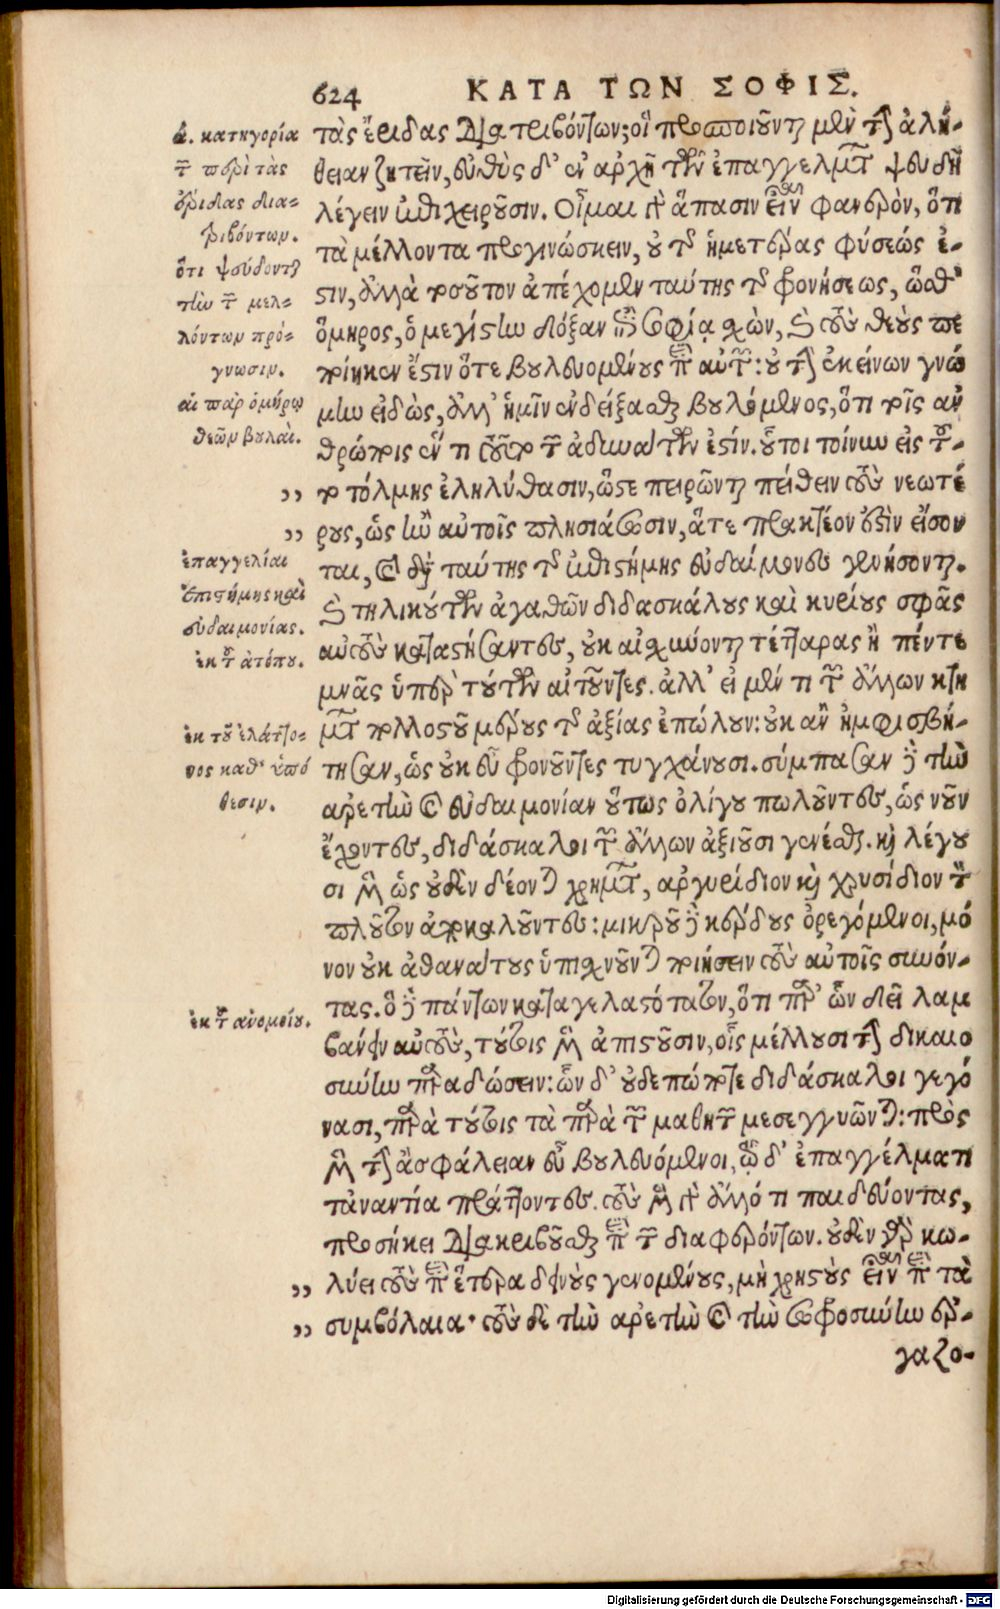 624 ΚΑΤΑ ΤΩΝ ΣΟΦΙΣ.
τὰς ἔριδας διατριβόντων; οἳ προσποιοῦνται μὲν τὴν ἀλή-
θειαν ζητεῖν, εὐθὺς δ' ἐν ἀρχῇ τῶν ἐπαγγελμάτων ψευδῆ
λέγειν ἐπιχειροῦσιν. Οἶμαι γὰρ ἅπασιν εἶναι φανερὸν, ὅτι
τὰ μέλλοντα προγινώσκειν, οὐ τῆς ἡμετέρας φύσεώς ἐ-
στιν, ἀλλὰ τοσοῦτον ἀπέχομεν ταύτης τῆς φρονήσεως, ὥσθ'
ὅμηρος, ὁ μεγίστην δόξαν ἐπὶ σοφίᾳ λαχὼν, καὶ τοὺς θεοὺς πε
ποίηκεν ἔστιν ὅτε βουλευομένους ὑπὲρ αὐτῶν: οὐ τὴν ἐκείνων γνώ
μην εἰδὼς, ἀλλ' ἡμῖν ἐνδείξασθαι βουλόμενος, ὅτι τοῖς ἀν
θρώποις ἓν τι τοῦτο τῶν ἀδυνάτων ἐστίν. οὗτοι τοίνυν εἰς τοῦ-
το τόλμης ἐληλύθασιν, ὥστε πειρῶνται πείθειν τοὺς νεωτέ
ρους, ὡς ἢν αὐτοῖς πλησιάσωσιν, ἅτε πρακτέον ἐστὶν εἴσον
ται, καὶ διὰ ταύτης τῆς ἐπιστήμης εὐδαίμονες γενήσονται.
καὶ τηλικούτων ἀγαθῶν διδασκάλους καὶ κυρίους σφᾶς
αὐτοὺς καταστήσαντες, οὐκ αἰσχύνονται τέτταρας ἢ πέντε
μνᾶς ὑπὲρ τούτων αἰτοῦντες. ἀλλ' εἰ μέν τι τῶν ἄλλων κτη
μάτων πολλοστοῦ μέρους τῆς ἀξίας ἐπώλουν: οὐκ ἂν ἠμφισβή-
τησαν, ὡς οὐκ εὖ φρονοῦντες τυγχάνουσι. σύμπασαν δὲ τὴν
ἀρετὴν καὶ εὐδαιμονίαν οὕτως ὀλίγου πωλοῦντες, ὡς νοῦν
ἔχοντες, διδάσκαλοι τῶν ἄλλων ἀξιοῦσι γενέσθαι. καὶ λέγου
σι μὲν ὡς οὐδὲν δέονται χρημάτων, ἀργυρίδιον καὶ χρυσίδιον τὸν
πλοῦτον ἀποκαλοῦντες: μικροῦ δὲ κέρδους ὀρεγόμενοι, μό
νον οὐκ ἀθανάτους ὑπισχνοῦνται ποιήσειν τοὺς αὐτοῖς συνόν-
τας. ὃ δὲ πάντων καταγελαστότατον, ὅτι παρ' ὧν δεῖ λαμ
βάνειν αὐτοὺς, τούτοις μὲν ἀπιστοῦσιν, οἷς μέλλουσι τὴν δικαιο
σύνην παραδώσειν: ὧν δ' οὐδεπώποτε διδάσκαλοι γεγό
νασι, παρὰ τούτοις τὰ παρὰ τῶν μαθητῶν μεσεγγυῶνται: πρὸς
μὲν τὴν ἀσφάλειαν εὖ βουλευόμενοι, τῷ δ' ἐπαγγέλματι
τἀναντία πράττοντες. τοὺς μὲν γὰρ ἄλλό τι παιδεύοντας,
προσήκει διακριβοῦσθαι περὶ τῶν διαφερόντων. οὐδὲν γὰρ κω-
λύει τοὺς περὶ ἕτερα δεινοὺς γενομένους, μὴ χρηστοὺς εἶναι περὶ τὰ
συμβόλαια· τοὺς δὲ τὴν ἀρετὴν καὶ τὴν σωφροσύνην ἐρ-
γαζο-
α. κατηγορία
τῶν περὶ τὰς
ἔριδας δια-
τριβόντων.
ὅτι ψεύδονται
τὴν τῶν μελ-
λόντων πρό-
γνωσιν.
αἱ παρ' ὁμήρῳ
θεῶν βουλαί.
,,
,,
ἐπαγγελίαι
ἐπιστήμης καὶ
εὐδαιμονίας.
ἐκ τοῦ ἀτόπου.
ἐκ τοῦ ἐλάττο-
νος καθ' ὑπό
θεσιν.
ἐκ τοῦ ἀνομοίου.
,,
,,
Digitalisierung gefördert durch die Deutsche Forschungsgemeinschaft - DFG